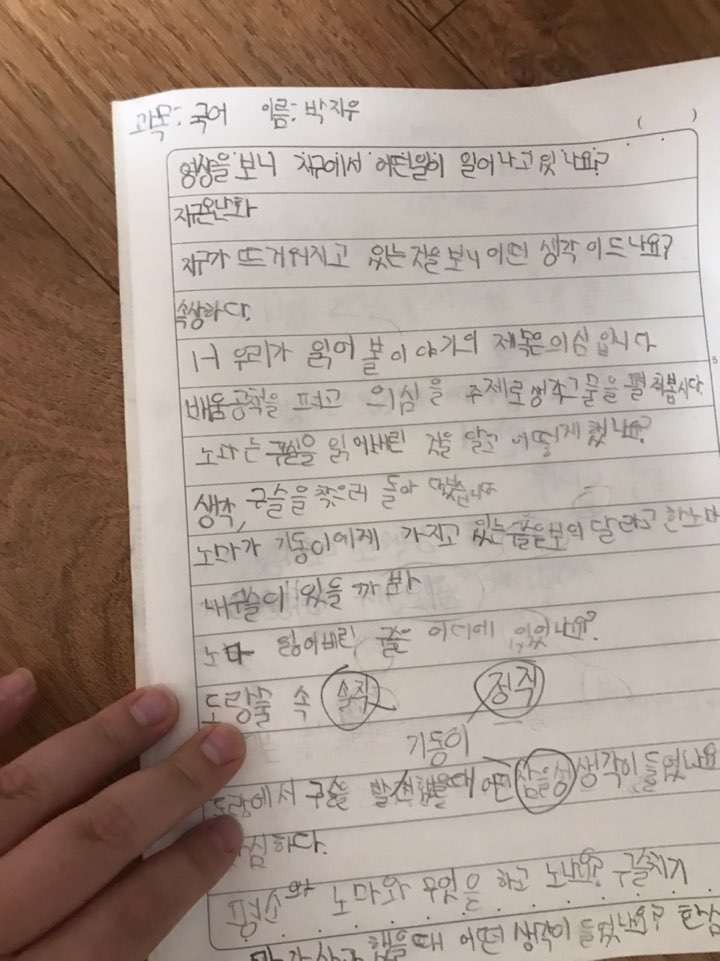 과목: 국어 이름: 박지우 ( )
영상을 보니 지구에서 어떤일이 일어나고 있나요?
지구온난화
지구가 뜨거워지고 있는 것을 보니 어떤 생각이 드나요?
속상하다.
1-1 우리가 읽어 볼 이야기의 제목은 의심 입니다
배움공책을 펴고 의심을 주제로 생각그물을 펼쳐봅시다
노마는 구슬을 잃어버린 것을 알고 어떻게 했나요?
생각, 구슬을 찾으러 돌아
노마가 기동이에게 가지고 있는
내구슬이 있을 까 봐
노마 잃어버린 어디에 있었나요?
도랑물 속 솔직 정직
기동이
도랑에서 구슬 발견했을때 어떤 생각이 들었나요
심하다.
평소 노마와 무엇을 하고 노나요? 구슬치기
했을때 어떤 생각이 들었나요?